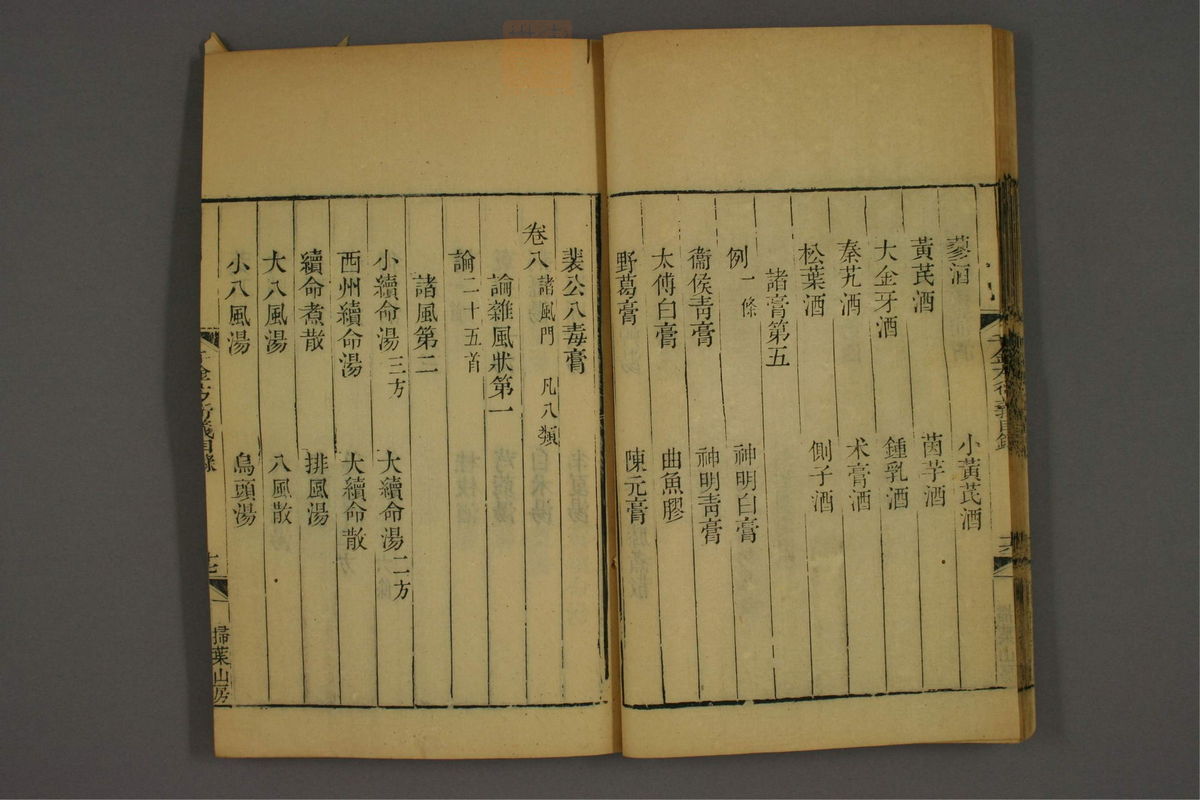 蓼酒　小黃芪酒
黃芪酒　茵芋酒
大金牙酒　鍾乳酒
秦艽酒　术膏酒
松葉酒　側子酒
諸膏第五
例一條　神明白膏
衞侯靑膏　神明靑膏
太傅白膏　曲魚膠
野葛膏　陳元膏
裴公八毒膏
卷八諸風門　凡八類
論雜風狀第一
論二十五首
諸風第二
小續命湯三方　大續命湯二方
西州續命湯　大續命散
續命煮散　排風湯
大八風湯　八風散
小八風湯　烏頭湯
千金方衍義目錄
掃葉山房